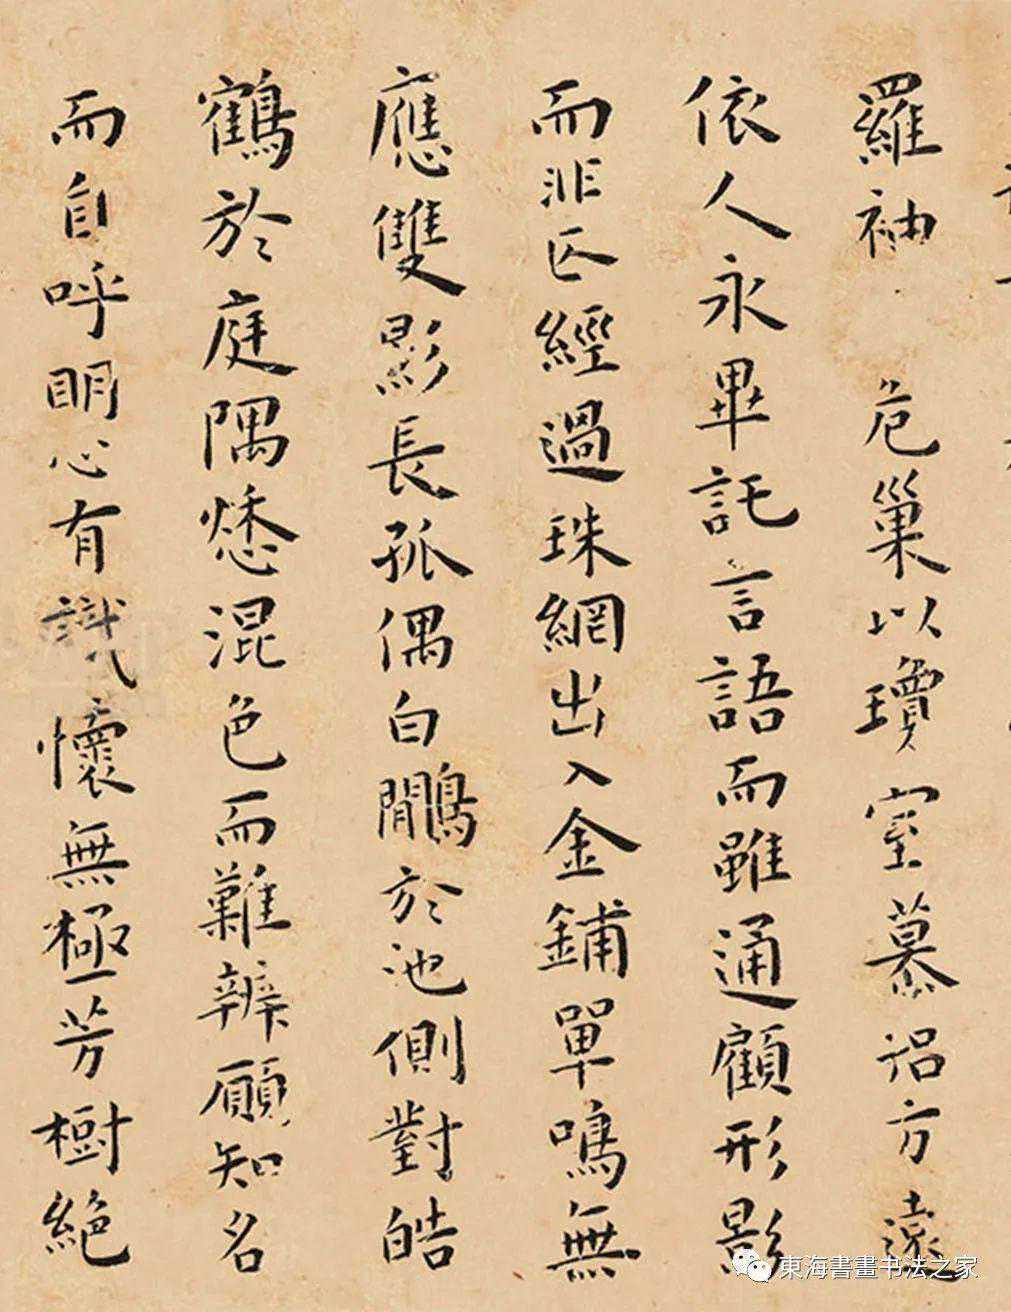 羅袖 危巢以瓊室慕侶方遠
依人永畢託言語而雖通顧形影
而非匹經過珠網出入金鋪單鳴無
應雙影長孤偶白鷴於池側對皓
鶴於庭隅愁混色而難辨願知名
而自呼明心有識懷無極芳樹絕
東海書畫书法之家